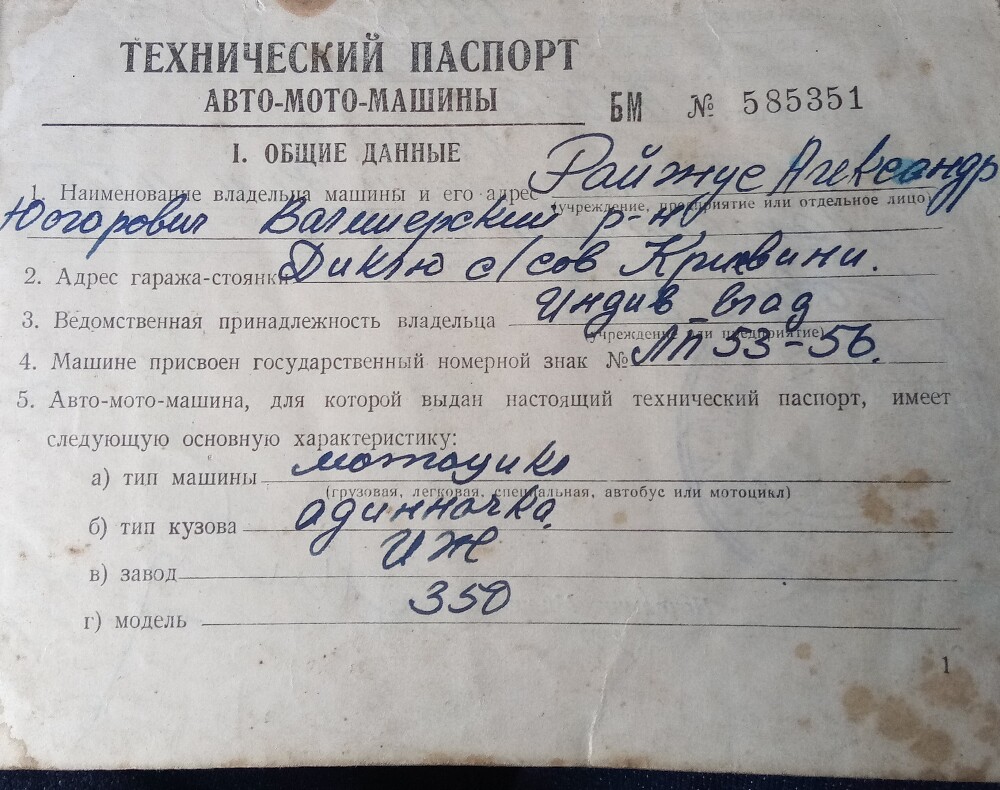 ТЕХНИЧЕСКИЙ ПАСПОРТ
АВТО-МОТО-МАШИНЫ
БМ № 585351
I. ОБЩИЕ ДАННЫЕ
1. Наименование владельца машины и его адрес Райжус Александр
(учреждение, предприятие или отдельное лицо)
Югорович Валмиерский р-н
2. Адрес гаража-стоянки Диклю с/сов Кривини.
3. Ведомственная принадлежность владельца Индив влад
(учреждение или предприятие)
4. Машине присвоен государственный номерной знак № ЛП 53-56.
5. Авто-мото-машина, для которой выдан настоящий технический паспорт, имеет
следующую основную характеристику:
а) тип машины мотоцикл
(грузовая, легковая, специальная, автобус или мотоцикл)
б) тип кузова адинночка
в) завод ИЖ
г) модель 350
1